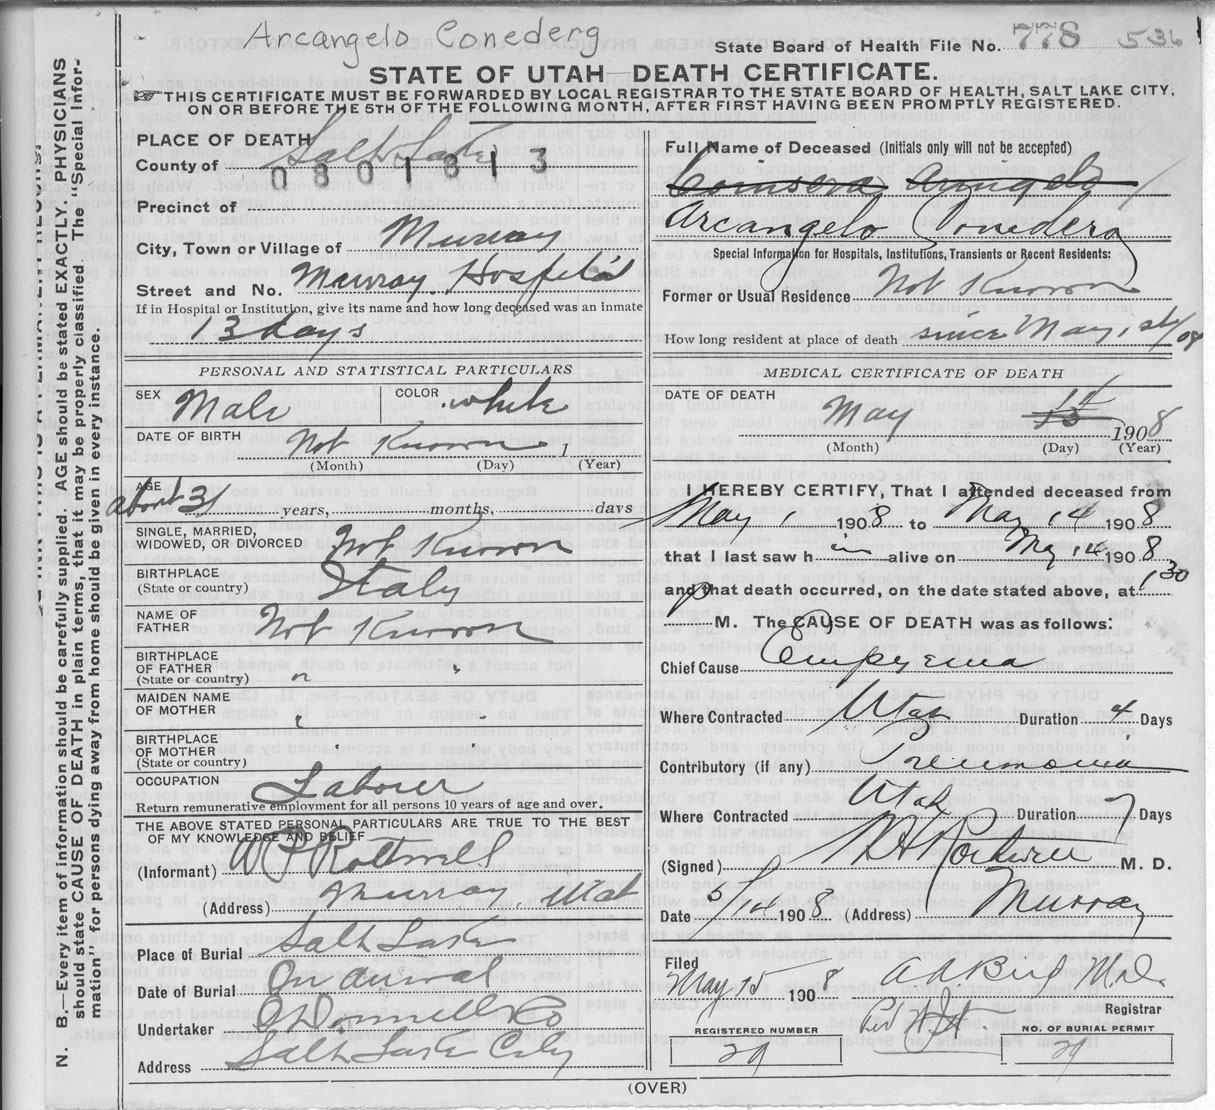 Arcangelo Conederg
State Board of Health File No. 778 536
STATE OF UTAH DEATH CERTIFICATE.
THIS CERTIFICATE MUST BE FORWARDED BY LOCAL REGISTRAR TO THE STATE BOARD OF HEALTH, SALT LAKE CITY,
ON OR BEFORE THE 5TH OF THE FOLLOWING MONTH, AFTER FIRST HAVING BEEN PROMPTLY REGISTERED.
N. B.—Every item of information should be carefully supplied. AGE should be stated EXACTLY. PHYSICIANS
should state CAUSE OF DEATH in plain terms, that it may be properly classified. The "Special Infor-
mation" for persons dying away from home should be given in every instance.
PLACE OF DEATH
County of Salt Lake
0801813
Precinct of
City, Town or Village of Murray
Street and No. Murray Hospital
If in Hospital or Institution, give its name and how long deceased was an inmate
13 days
PERSONAL AND STATISTICAL PARTICULARS
SEX Male COLOR white
DATE OF BIRTH Not Known 1
(Month) (Day) (Year)
AGE about 31 years, months, days
SINGLE, MARRIED,
WIDOWED, OR DIVORCED Not Known
BIRTHPLACE
(State or country) Italy
NAME OF
FATHER Not Known
BIRTHPLACE
OF FATHER
(State or country) " "
MAIDEN NAME
OF MOTHER " "
BIRTHPLACE
OF MOTHER
(State or country) " "
OCCUPATION Laborer
Return remunerative employment for all persons 10 years of age and over.
THE ABOVE STATED PERSONAL PARTICULARS ARE TRUE TO THE BEST
OF MY KNOWLEDGE AND BELIEF
(Informant) Rothwell
(Address) Murray, Utah
Place of Burial Salt Lake
Date of Burial On arrival
Undertaker O'Donnell Co
Address Salt Lake City
Full Name of Deceased (Initials only will not be accepted)
Arcangelo Conedera
Special Information for Hospitals, Institutions, Transients or Recent Residents:
Former or Usual Residence Not Known
How long resident at place of death since May, 1st/08
MEDICAL CERTIFICATE OF DEATH
DATE OF DEATH May 14 13 1908
(Month) (Day) (Year)
I HEREBY CERTIFY, That I attended deceased from
May 1 1908 to May 14 1908
that I last saw h im alive on May 14 1908
and that death occurred, on the date stated above, at 1,30
P M. The CAUSE OF DEATH was as follows:
Chief Cause Empyema
Where Contracted Utah Duration 4 Days
Contributory (if any) Pneumonia
Where Contracted Utah Duration 7 Days
(Signed) Rothwell M. D.
Date 5/14 1908 (Address) Murray
Filed
May 15 1908
Registrar
REGISTERED NUMBER 29
NO. OF BURIAL PERMIT 29
(OVER)